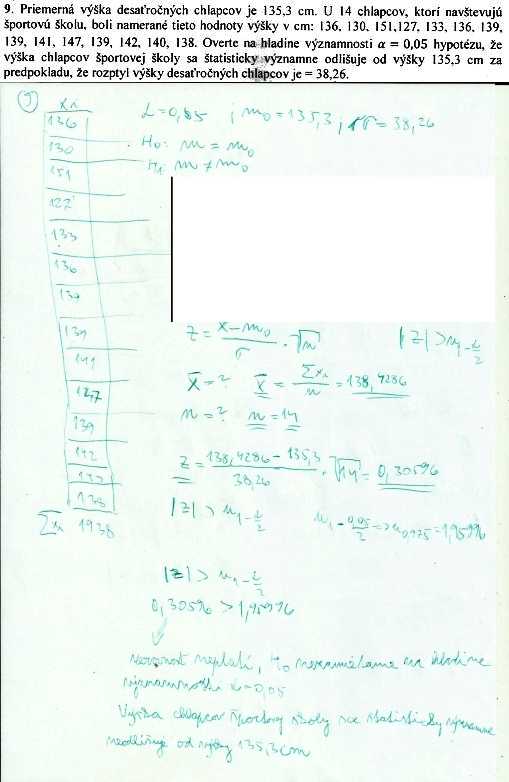 9. Priemerná výška desaťročných chlapcov je 135,3 cm. U 14 chlapcov, ktorí navštevujú
športovú školu, boli namerané tieto hodnoty výšky v cm: 136, 130, 151,127, 133, 136, 139,
139, 141, 147, 139, 142, 140, 138. Overte na hladine významnosti α = 0,05 hypotézu, že
výška chlapcov športovej školy sa štatisticky významne odlišuje od výšky 135,3 cm za
predpokladu, že rozptyl výšky desaťročných chlapcov je = 38,26.
9) xi α=0,05 ; m₀=135,3 ; σ=38,26
136
130 H₀: m = m₀
151 H₁: m ≠ m₀
127
133
136
139
139 z = x̄−m₀/σ · √n |z| > u₁−α/2
141 x̄=? x̄ = Σxi/n = 138,4286
147
139 n=? n=14
142 z = 138,4286−135,3/38,26 · √14 = 0,30596
138
Σxi 1938 |z| > u₁−α/2 u₁−0,05/2 => u0,975=1,95996
|z| > u₁−α/2
0,30596 > 1,95996
nerovnosť neplatí, H₀ nezamietame na hladine
významnosti α=0,05
Výška chlapcov športovej školy sa štatisticky významne
neodlišuje od výšky 135,3 cm